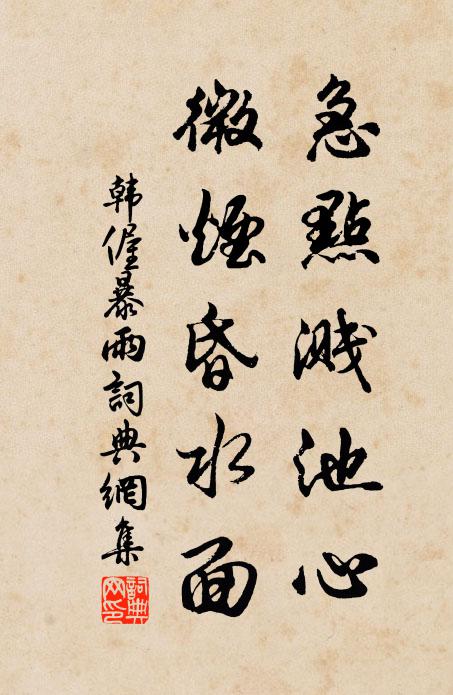 急點濺池心
微煙昏水面
韩偓暴雨詞典網集
詞典网印